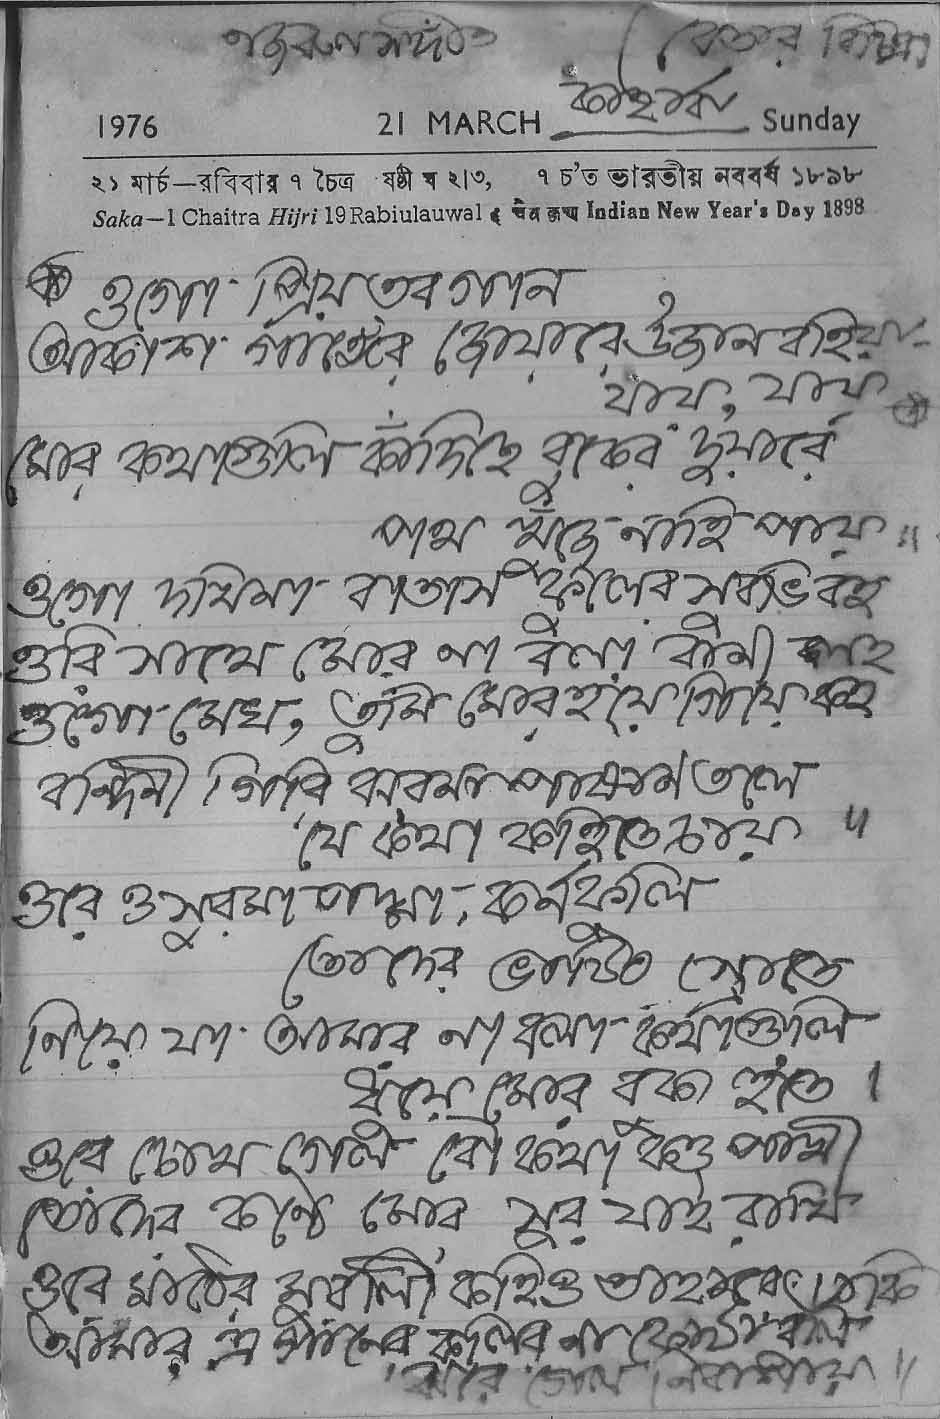 নজরুল সঙ্গীত (বেতার শিক্ষা)
কাহারবা
1976 21 MARCH Sunday
২১ মার্চ—রবিবার ৭ চৈত্র ষষ্ঠী ঘ ২।৩, ৭ চ'ত ভারতীয় নববর্ষ ১৮৯৮
Saka—1 Chaitra Hijri 19 Rabiulauwal Indian New Year's Day 1898
ওগো প্রিয় তব গান
আকাশ গাঙের জোয়ারে উজান বহিয়া
যায়, যায়
মোর কথাগুলি কাঁদিছে বুকের দুয়ারে
পথ খুঁজে নাহি পায় ॥
ওগো দখিনা বাতাস ফুলের সুরভি বহ
ওরি সাথে মোর না বলা বাণী লহ
ওগো মেঘ, তুমি মোর হয়ে গিয়ে কহ
বন্দিনী গিরি ঝরনা পাষাণ তলে
যে কথা কহিতে চায় ॥
ওরে ও সুরমা পদ্মা, কর্ণফুলি
তোদের ভাটির স্রোতে
নিয়ে যা আমার না বলা কথাগুলি
ধুয়ে মোর বুক হতে ।
ওরে চোখ গেল বৌ কথা কও পাখী
তোদের কণ্ঠে মোর সুর যাই রাখি
ওরে মাঠের মুরলী কহিও তাহারে ডাকি
আমার এ গানের কলির না ফোটা বলি
ঝরে গেল নিরাশায় ॥